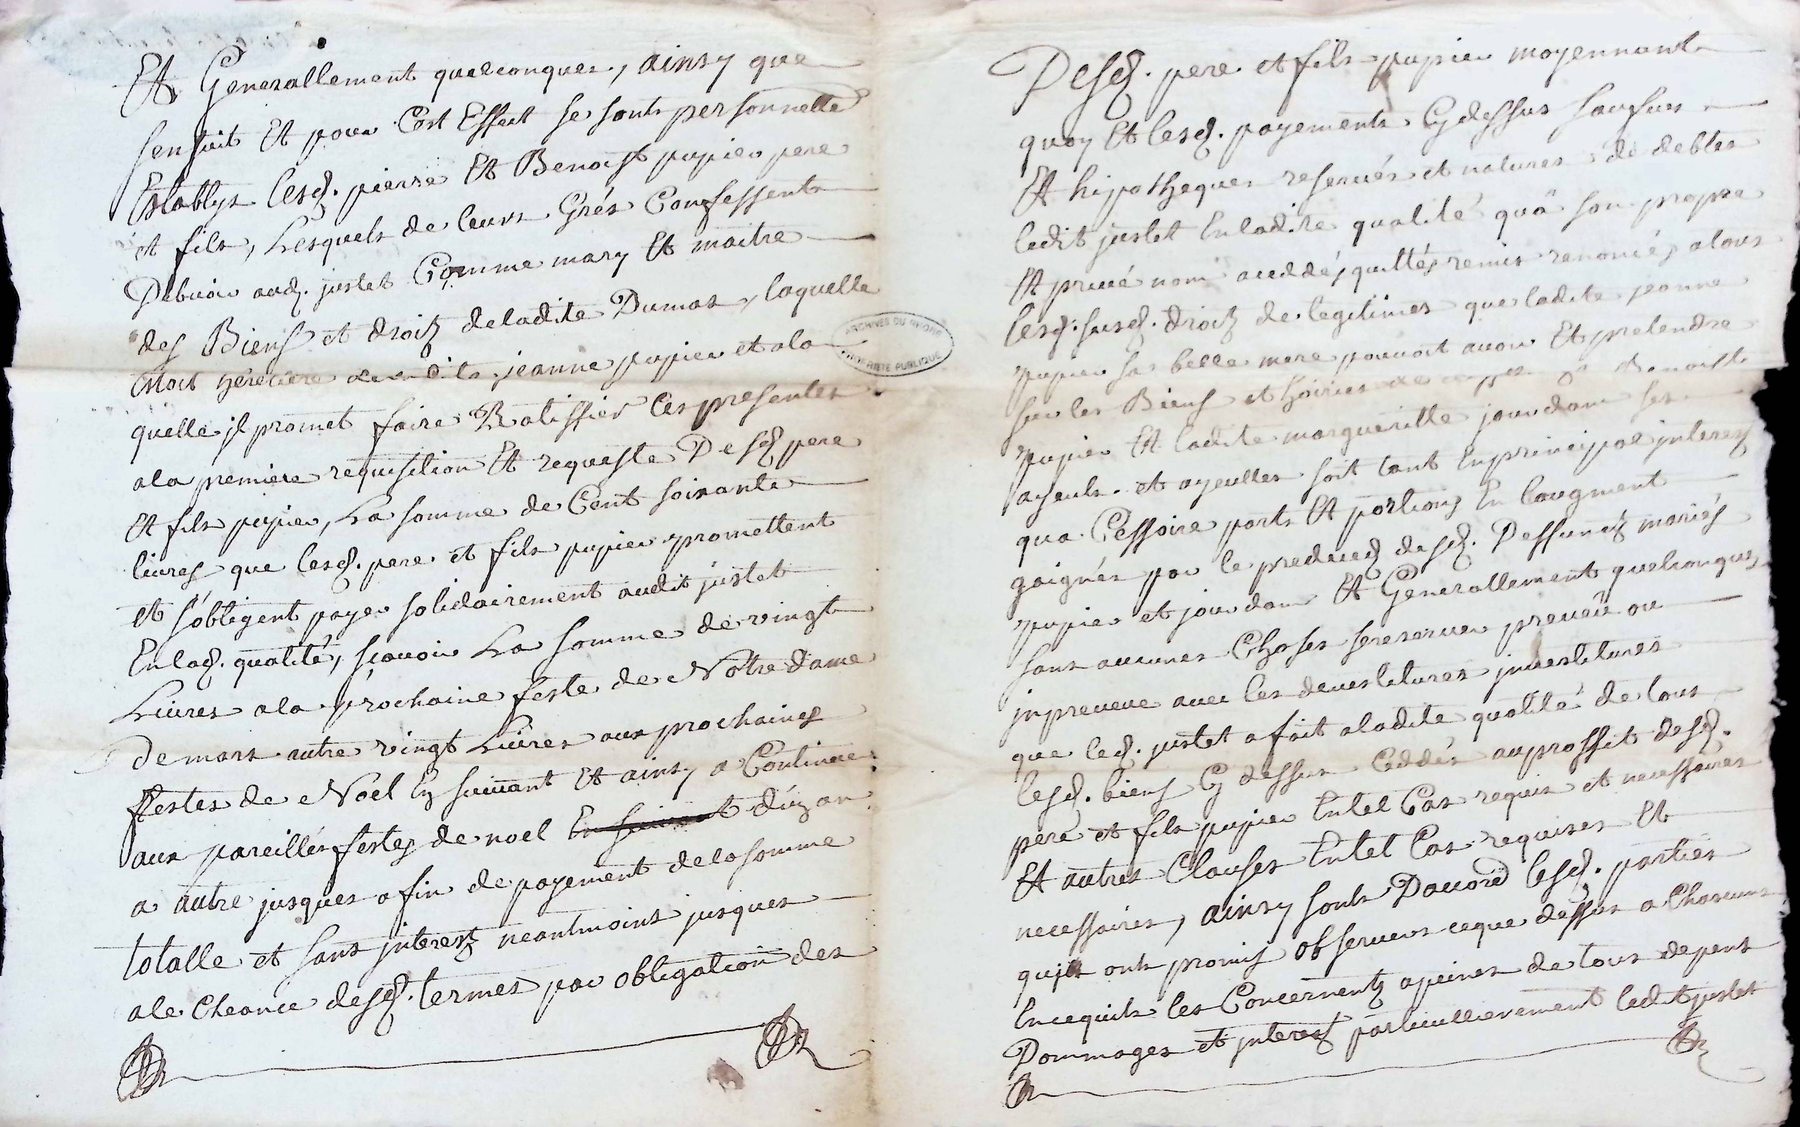 Et Generallement quelconques, ainsy que
sensuit Et pour Cest Effect se sont personnelle
Establys lesd. pierre Et Benoist pupier pere
et fils, Lesquels de leurs Grés Confessent
Debvoir aud. justet Comme mary Et maitre
des Biens et droitz deladite Dumas, laquelle
Etoit heretiere deladite jeanne pupier et ala
quelle jl promet faire Ratiffier les presentes
ala premiere requisition Et requeste Desd pere
Et fils pupier, La somme de Cent soixante
livres que lesd. pere et fils pupier promettent
et sobligent payer solidairement audit justet
Enlad. qualité, sçavoir La somme de vingt
Livres ala prochaine feste de Notre dame
De mars autre vingt Livres aux prochaines
ffestes de Noel En suivant Et ainsy a Continuer
aux pareilles festes de noel En suivant d'uz an
a autre jusques a fin de payement dela somme
totalle et sans jnteretz neantmoins jusques
ale Cheance desd. termes par obligation des
Desd. pere et fils pupier moyennant
quoy Et lesd. payements Cydessus saufur
Et hipotheques reservés et natures de debtes
ledit justet Enladite qualité qu'a son propre
Et privé nom a ceddé quitté remis renoncé, alous
lesd. susd. droitz de legitimes que ladite jeanne
pupier sa belle mere pouvoit avoir Et pretendre
sur les Biens et hoiries de Benoist
pupier Et ladite margueritte jourdan ses
ayeuls et ayeulles soit tant En principal jnteretz
qua Cessoire parts Et portions En laugment
gaignés par le predeced desd. Deffunctz mariés
pupier et jourdan Et Generallement quelconques
sans aucunes Choses se reserver preveüe ou
jnpreveue avec les devestitures jnvestitures
que led. justet a fait aladite qualité de tous
lesd. biens Cy dessus Ceddés au proffit desd.
pere et fils pupier Entel Cas requis et necessaires
Et autres Clauses Entel Cas requises Et
necessaires, ainsy sont Daccord lesd. parties
quiſ ont promis observer ceque dessus a Chacuns
Encequils les Concernentz apeines de tous depens
Dommages et jnteretz particullierement ledit justet
ARCHIVES DU RHONE
PROPRIETE PUBLIQUE